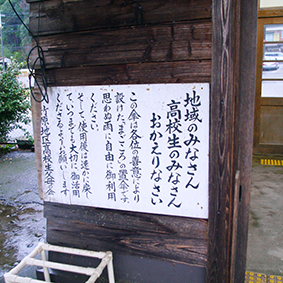 地域のみなさん
高校生のみなさん
おかえりなさい
この傘は各位の善意により
設けた、まごころの置傘です。
思わぬ雨に自由に御利用
ください。
そして、使用後は速かに戻し
て、いつまでも大切に御活用
くださるようお願いします
地区高校生父母の会